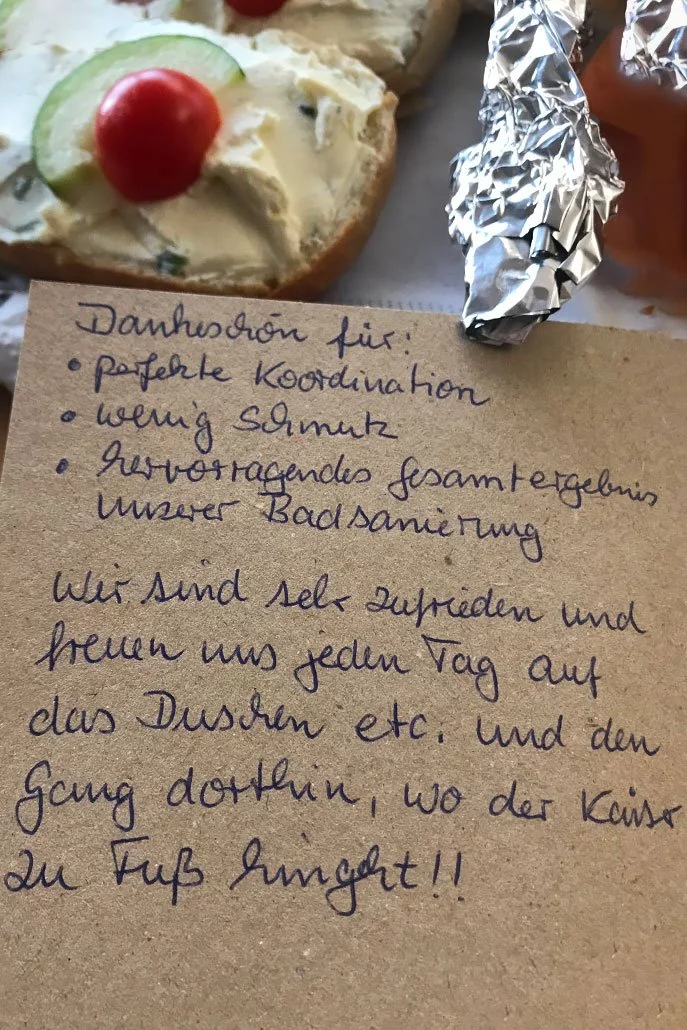 Dankeschön für:
• perfekte Koordination
• wenig Schmutz
• hervorragendes Gesamtergebnis
unserer Badsanierung
Wir sind sehr zufrieden und
freuen uns jeden Tag auf
das Duschen etc. und den
Gang dorthin, wo der Kaiser
zu Fuß hingeht!!